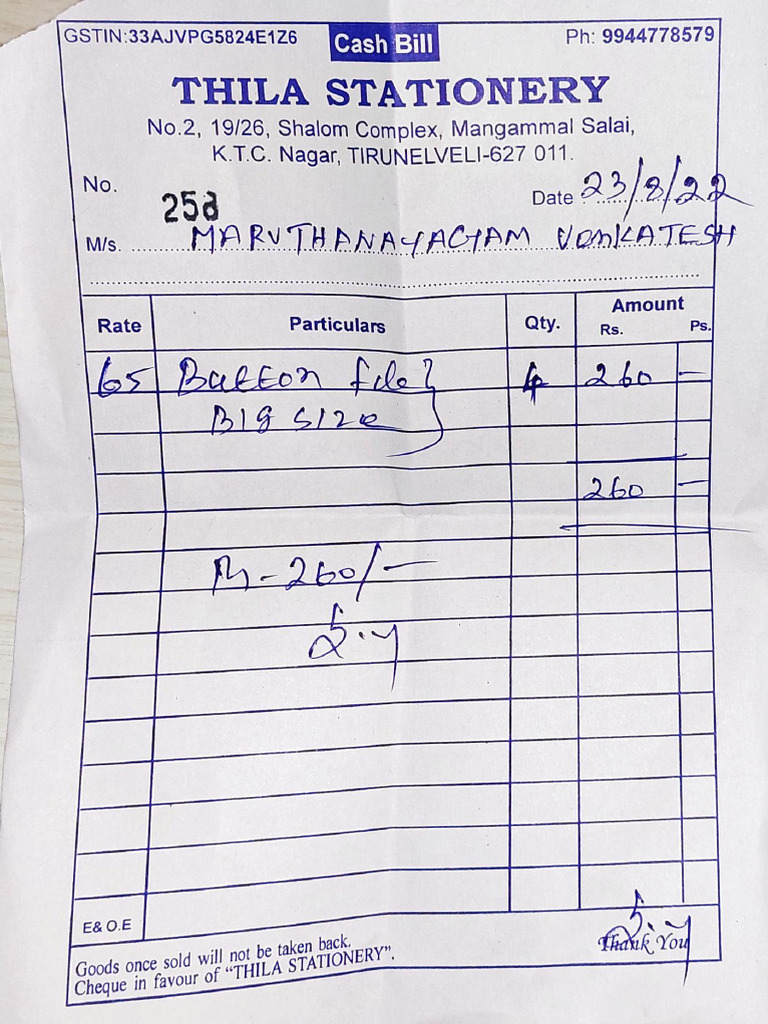 GSTIN:33AJVPG5824E1Z6 Cash Bill Ph: 9944778579
THILA STATIONERY
No.2, 19/26, Shalom Complex, Mangammal Salai,
K.T.C. Nagar, TIRUNELVELI-627 011.
No. Date 23/8/22
M/s. MARUTHANAYAGAM VENKATESH
Rate Particulars Qty. Amount
Rs. Ps.
65 Button file 4 260 —
BIG SIZE
260 —
260/—
E& O.E
Thank You
Goods once sold will not be taken back.
Cheque in favour of “THILA STATIONERY”.